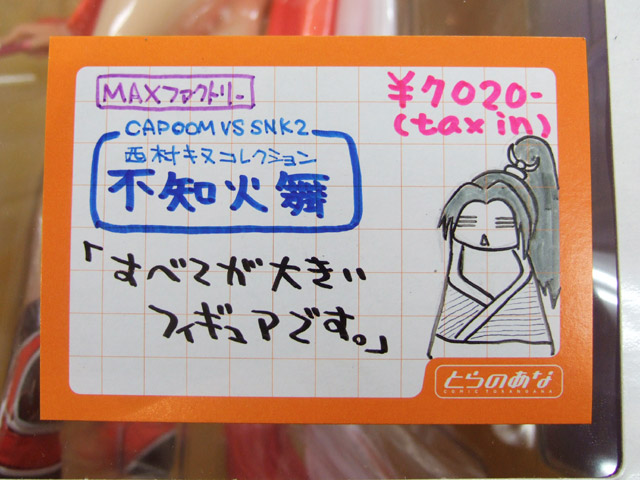 MAXファクトリー
¥7020-
(tax in)
CAPOOM VS SNK2
西村キヌコレクション
不知火舞
「すべてが大きい
フィギュアです。」
とらのあな
COMIC TORANOANA